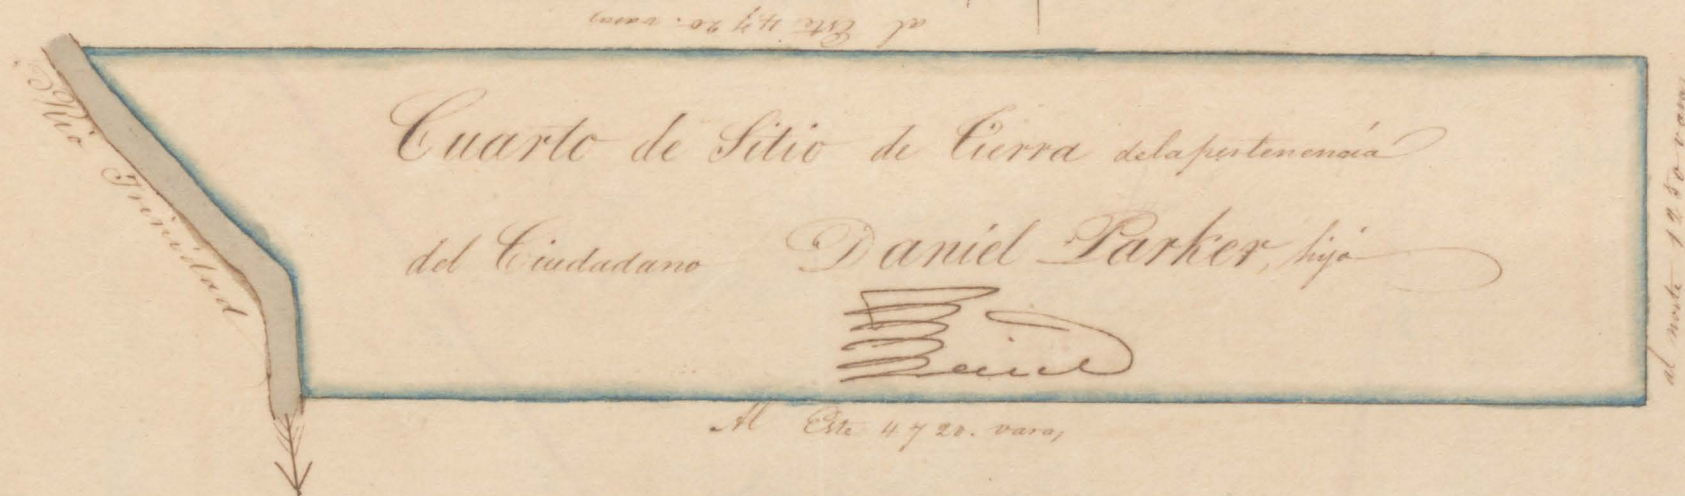 al Este 4720. varas
Rio Trinidad
Cuarto de Sitio de Tierra de la pertenencia
del Ciudadano Daniel Parker, hijo
Al Este 4720. varas
al norte 1250 varas